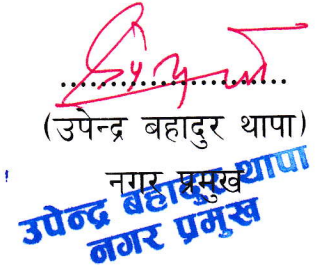 ....................
(उपेन्द्र बहादुर थापा)
नगर प्रमुख
उपेन्द्र बहादुर थापा
नगर प्रमुख